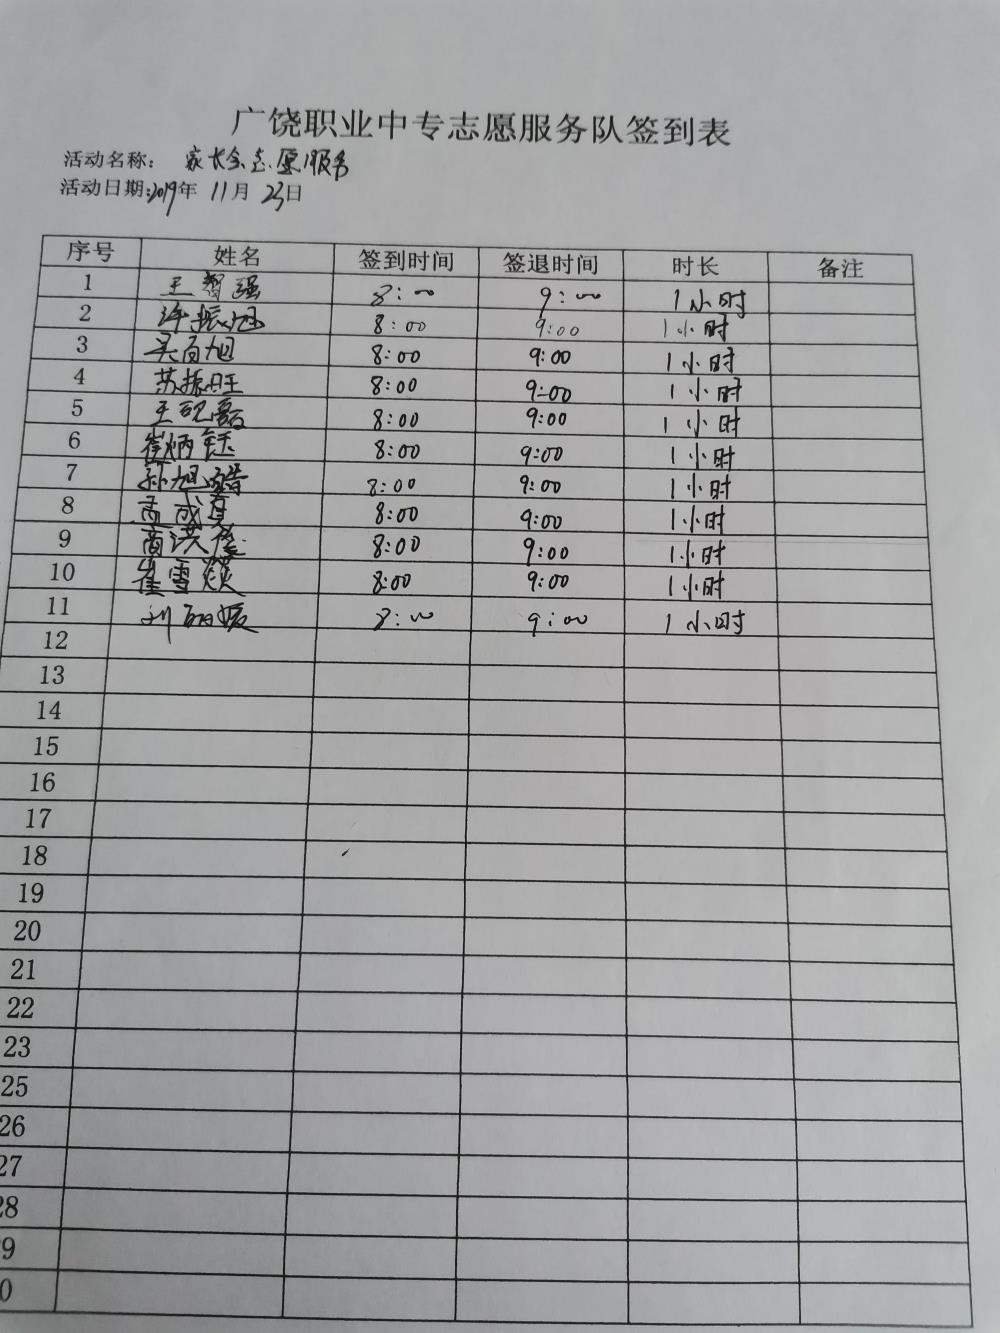 广饶职业中专志愿服务队签到表
活动名称： 家长会志愿服务
活动日期:2019年 11月 23日
序号 姓名 签到时间 签退时间 时长 备注
1 王智强 8:00 9:00 1小时
2 许振旭 8:00 9:00 1小时
3 吴百旭 8:00 9:00 1小时
4 苏振旺 8:00 9:00 1小时
5 王砚磊 8:00 9:00 1小时
6 崔炳钰 8:00 9:00 1小时
7 孙旭 8:00 9:00 1小时
8 孟成真 8:00 9:00 1小时
9 商洪 8:00 9:00 1小时
10 崔雪 8:00 9:00 1小时
11 刘丽媛 8:00 9:00 1小时
12
13
14
15
16
17
18
19
20
21
22
23
25
26
27
28
9
0